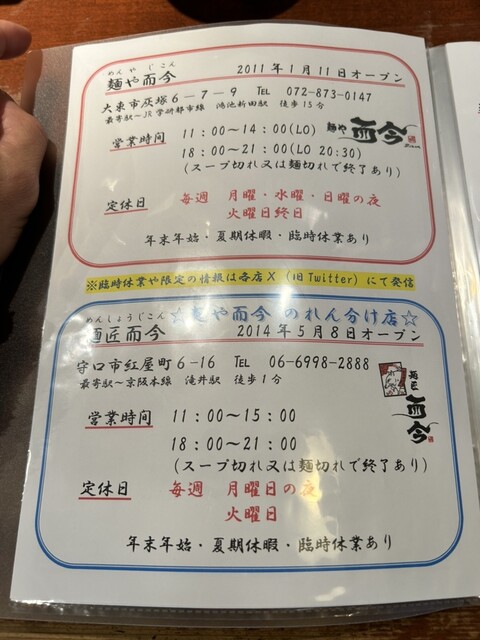 めんやじこん
麺や而今 2011年1月11日オープン
大東市灰塚6-7-9 TEL 072-873-0147
最寄駅~JR学研都市線 鴻池新田駅 徒歩15分
営業時間 11:00~14:00(LO)
麺や 而今
18:00~21:00(LO 20:30)
(スープ切れ又は麺切れで終了あり)
定休日 毎週 月曜・水曜・日曜の夜
火曜日終日
年末年始・夏期休暇・臨時休業あり
※臨時休業や限定の情報は各店X (旧Twitter) にて発信
☆麺や而今 のれん分け店☆
めんしょうじこん
麺匠而今 2014年5月8日オープン
守口市紅屋町6-16 TEL 06-6998-2888
最寄駅~京阪本線 滝井駅 徒歩1分
営業時間 11:00~15:00
麺匠 而今
18:00~21:00
(スープ切れ又は麺切れで終了あり)
定休日 毎週 月曜日の夜
火曜日
年末年始・夏期休暇・臨時休業あり